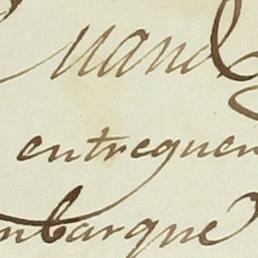 Mand
entreguen
mbarque